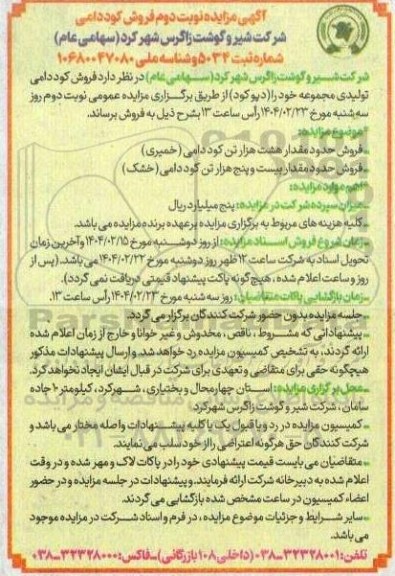 آگهی مزایده نوبت دوم فروش کود دامی
شرکت شیر و گوشت زاگرس شهرکرد (سهامی عام)
شماره ثبت ۵۰۳۴ و شناسه ملی ۱۰۶۸۰۰۴۷۰۸۰
شرکت شیر و گوشت زاگرس شهرکرد (سهامی عام) در نظر دارد فروش کود دامی
تولیدی مجموعه خود را (دپو کود) از طریق برگزاری مزایده عمومی نوبت دوم روز
سه‌شنبه مورخ ۱۴۰۴/۰۲/۲۳ رأس ساعت ۱۳ بشرح ذیل به فروش برساند.
*موضوع مزایده:
_ فروش حدود مقدار هشت هزار تن کود دامی (خمیری)
_ فروش حدود مقدار بیست و پنج هزار تن کود دامی (خشک)
*اهم موارد مزایده:
_ میزان سپرده شرکت در مزایده: پنج میلیارد ریال
_ کلیه هزینه های مربوط به برگزاری مزایده بر عهده برنده مزایده می باشد.
_ زمان شروع فروش اسناد مزایده: از روز دوشنبه مورخ ۱۴۰۴/۰۲/۱۵ و آخرین زمان
تحویل اسناد به شرکت ساعت ۱۲ ظهر روز دوشنبه مورخ ۱۴۰۴/۰۲/۲۲ می باشد. (پس از
روز و ساعت اعلام شده، هیچ‌گونه پاکت پیشنهاد قیمتی دریافت نمی گردد).
_ زمان بازگشایی پاکات متقاضیان: روز سه شنبه مورخ ۱۴۰۴/۰۲/۲۳ رأس ساعت ۱۳.
_ جلسه مزایده بدون حضور شرکت کنندگان برگزار می گردد.
_ پیشنهاداتی که مشروط، ناقص، مخدوش و غیر خوانا و خارج از زمان اعلام شده
ارائه گردند، به تشخیص کمیسیون مزایده رد خواهد شد. و ارسال پیشنهادات مذکور
هیچگونه حقی برای متقاضی و تعهدی برای شرکت در قبال ایشان ایجاد نخواهد کرد.
_ محل برگزاری مزایده: استان چهارمحال و بختیاری، شهرکرد، کیلومتر ۱۰ جاده
سامان، شرکت شیر و گوشت زاگرس شهرکرد
_ کمیسیون مزایده در رد و یا قبول یک یا کلیه پیشنهادات واصله مختار می باشد و
شرکت کنندگان حق هرگونه اعتراضی را از خود سلب می نمایند.
_ متقاضیان می بایست قیمت پیشنهادی خود را در پاکات لاک و مهر شده و در وقت
اعلام شده به دبیرخانه شرکت ارائه فرمایند. و پیشنهادات در جلسه مزایده و در حضور
اعضاء کمیسیون در ساعت مشخص شده بازگشایی می گردند.
_ سایر شرایط و جزئیات موضوع مزایده، در فرم و اسناد شرکت در مزایده موجود
می باشد.
تلفن: ۳۲۳۲۸۰۰۱-۰۳۸ (داخلی ۱۰۸ بازرگانی) _ فاکس: ۳۲۳۲۸۰۰۰-۰۳۸